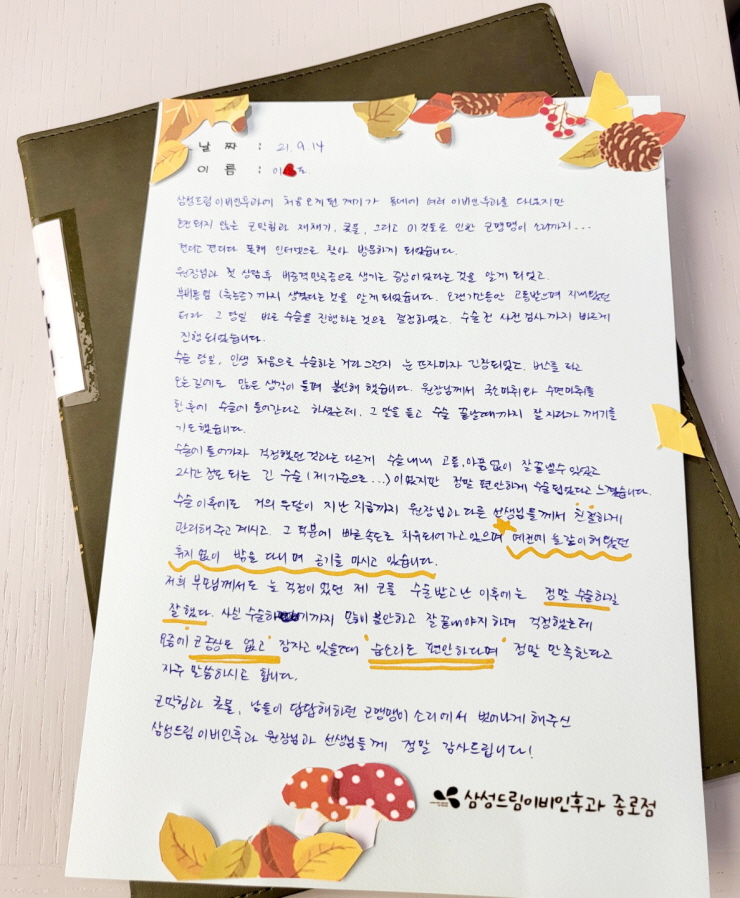 날 짜 : 21.9.14
이 름 : 이
삼성드림이비인후과에 처음 오게 된 계기가 동네에 여러 이비인후과를 다녔지만
호전되지 않는 코막힘과 재채기, 콧물, 그리고 이것들로 인한 코맹맹이 소리까지...
견디고 견디다 못해 인터넷으로 찾아 방문하게 되었습니다.
원장님과 첫 상담 후 비중격만곡증으로 생기는 증상이었다는 것을 알게 되었고.
부비동염(축농증)까지 생겼다는 것을 알게 되었습니다. 오랜기간동안 고통받으며 지내왔던
터라 그 당일 바로 수술을 진행하는 것으로 결정하였고. 수술 전 사전 검사까지 빠르게
진행되었습니다.
수술 당일, 인생 처음으로 수술하는 거라 그런지 눈 뜨자마자 긴장되었고. 버스를 타고
오는 길에도 많은 생각이 들며 불안해 했습니다. 원장님께서 국소마취와 수면마취를
한 후에 수술에 들어간다고 하셨는데, 그 말을 듣고 수술 끝날때까지 잘 자다가 깨기를
기도했습니다.
수술에 들어가자 걱정했던 것과는 다르게 수술 내내 고통, 아픔 없이 잘 끝낼 수 있었고
2시간 정도 되는 긴 수술(제 기준으로...)이었지만 정말 편안하게 수술 되었다고 느꼈습니다.
수술 이후에도 거의 두달이 지난 지금까지 원장님과 다른 선생님들께서 친절하게
관리해주고 계시고. 그 덕분에 빠른 속도로 치유되어가고 있으며 예전에 늘 같이 해왔던
휴지 없이 밖을 다니며 공기를 마시고 있습니다.
저희 부모님께서도 늘 걱정이 있었던 제 코를 수술 받고 난 이후에는 정말 수술하길
잘했다. 사실 수술하기까지 많이 불안하고 잘 끝내야지 하며 걱정했는데
요즘에 코증상도 없고 잠자고 있을때 숨소리도 편안하다며 정말 만족한다고
자주 말씀하시곤 합니다.
코막힘과 콧물, 남들이 답답해하던 코맹맹이 소리에서 벗어나게 해주신
삼성드림이비인후과 원장님과 선생님들께 정말 감사드립니다!
삼성드림이비인후과 종로점